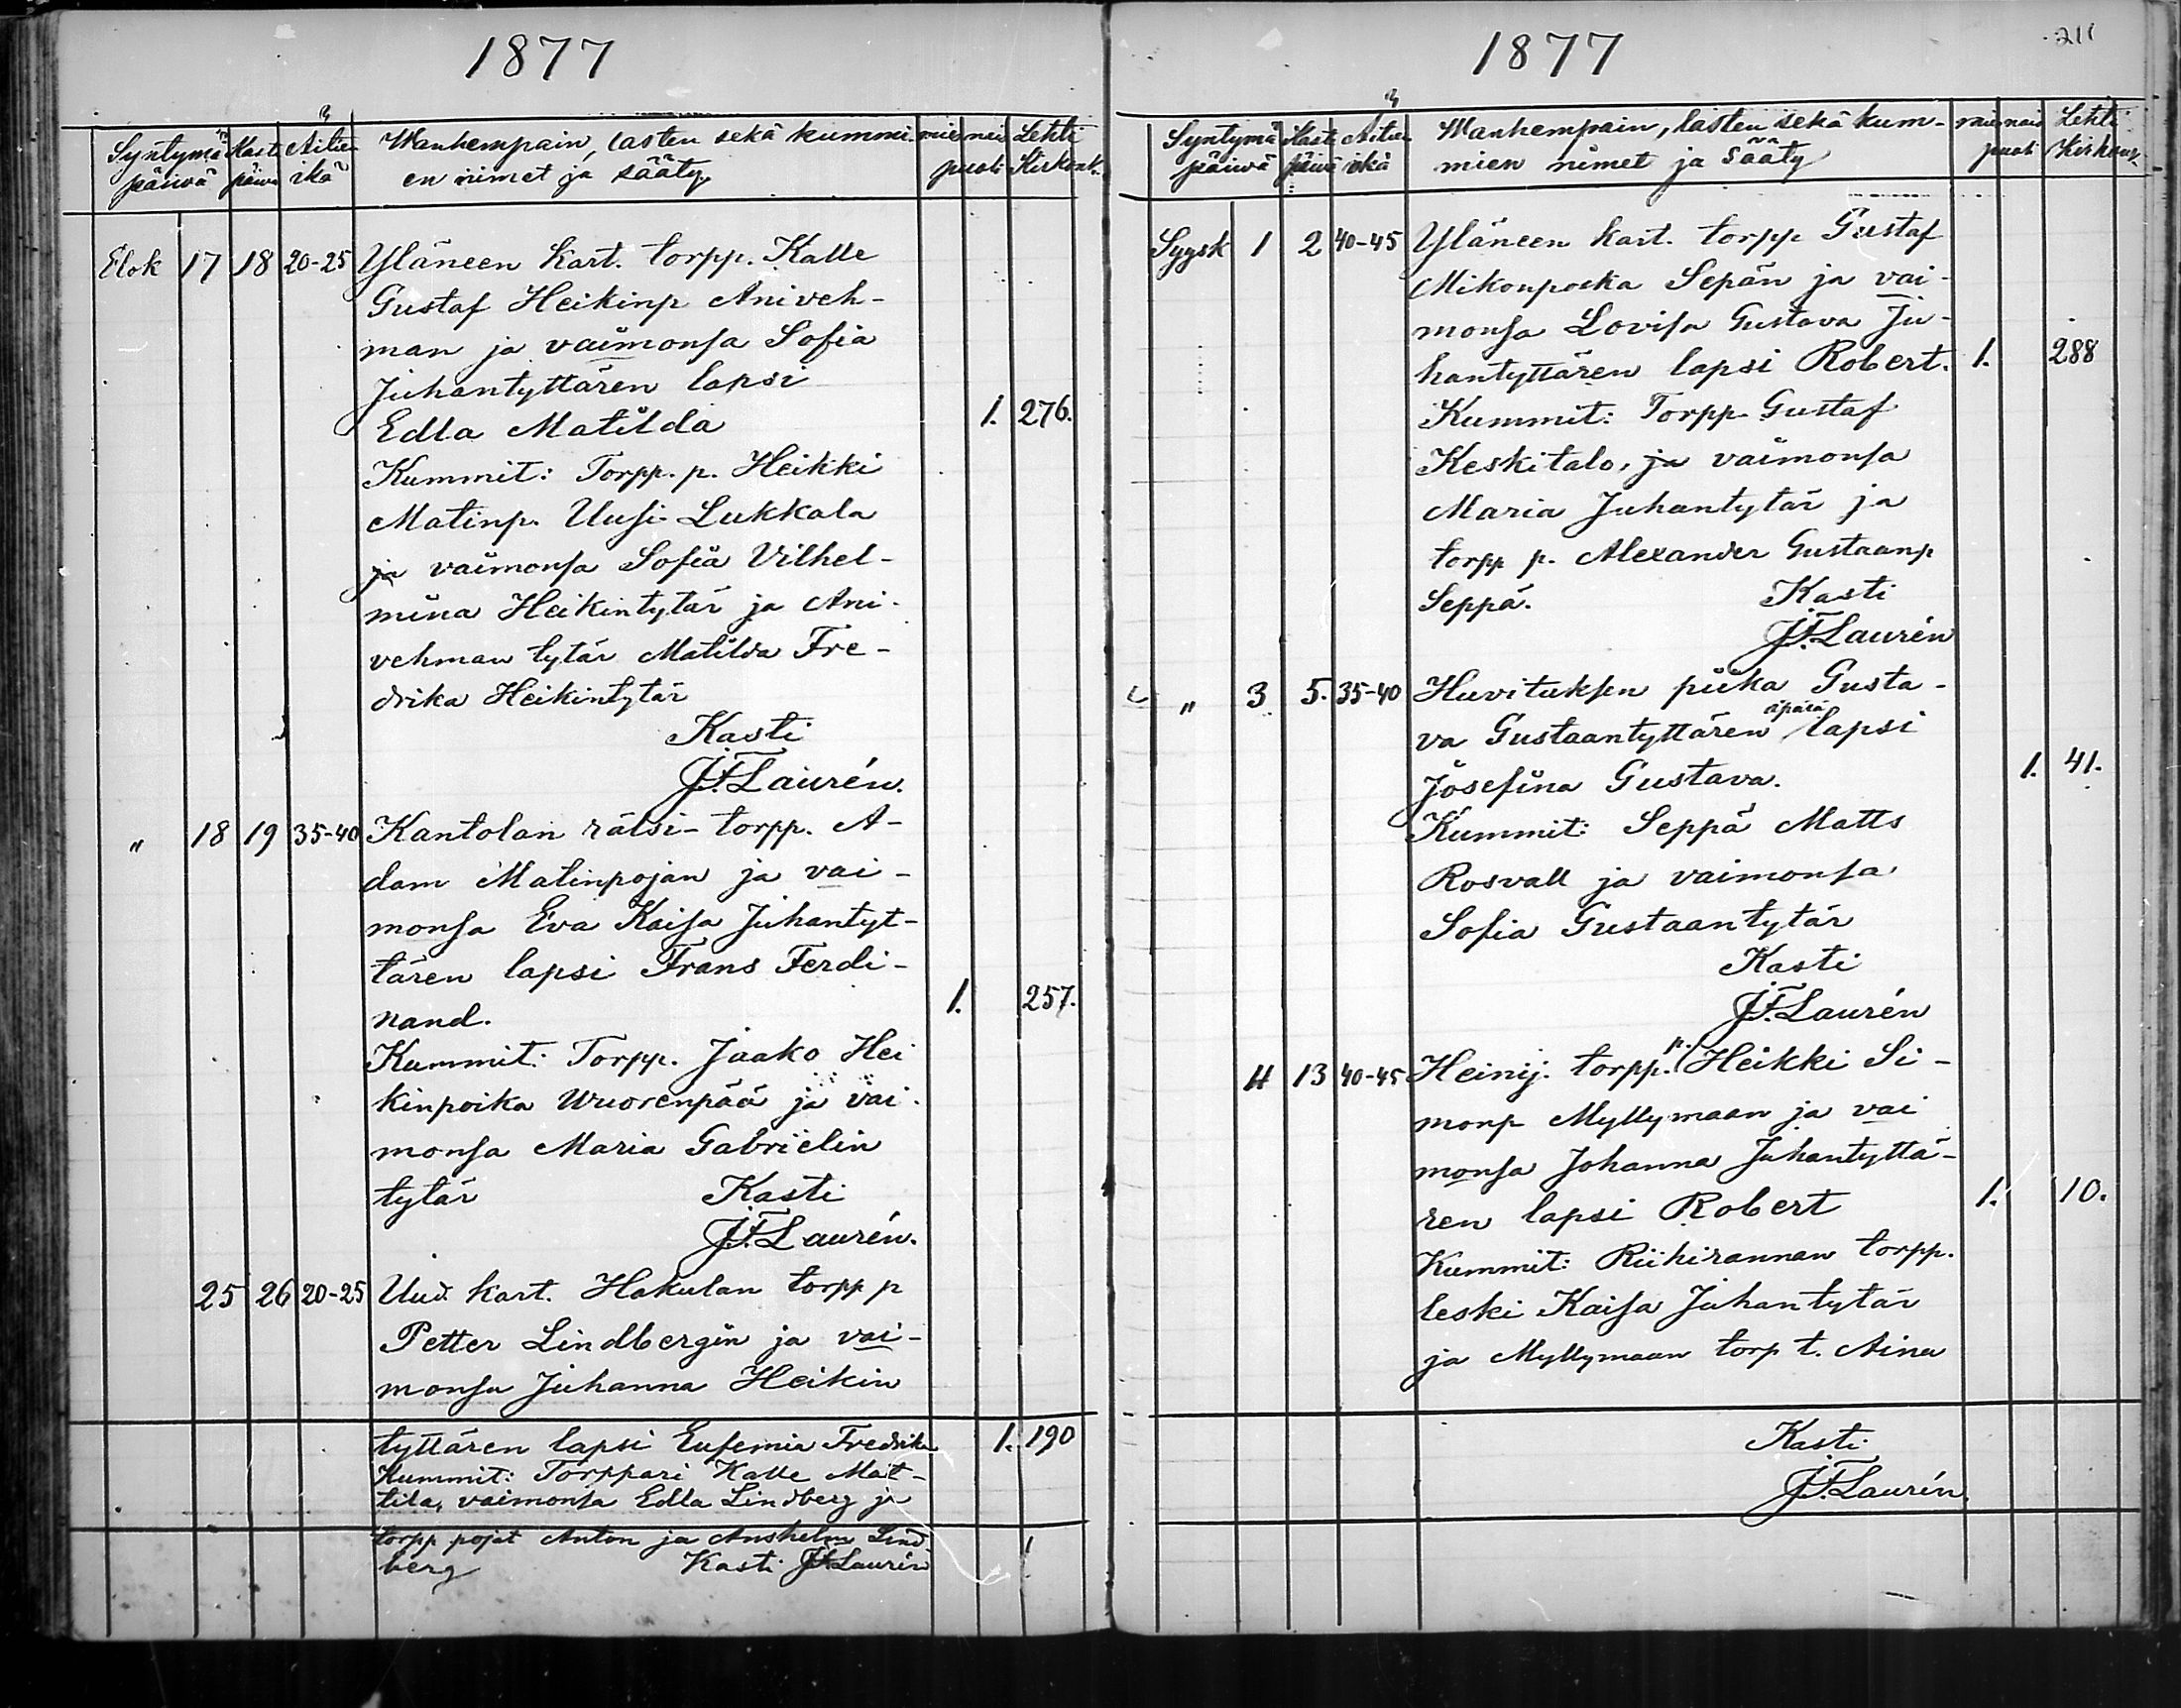 1877
Syntymä Kast Äitin Wanhempain, lasten sekä kummi- mie nai Lehti
päiwä päiwä ikä en nimet ja sääty. puoli Kirkonk.
Elok 17 18 20-25 Yläneen Kart. torpp. Kalle
Gustaf Heikinp Aniveh-
man ja vaimonsa Sofia
Juhantyttären lapsi
Edla Matilda 1. 276.
Kummit: Torpp. p. Heikki
Matinp. Uusi-Lukkala
ja vaimonsa Sofia Vilhel-
mina Heikintytär ja Ani-
vehman tytär Matilda Fre-
drika Heikintytär
Kasti
J.F. Laurén.
" 18 19 35-40 Kantolan rälsi-torpp. A-
dam Matinpojan ja vai-
monsa Eva Kaisa Juhantyt-
tären lapsi Frans Ferdi-
nand. 1. 257.
Kummit: Torpp. Jaako Hei
kinpoika Wuorenpää ja vai-
monsa Maria Gabrielin
tytär Kasti
J.F. Laurén.
25 26 20-25 Uud. kart. Hakulan torpp p
Petter Lindbergin ja vai-
monsa Juhanna Heikin
tyttären lapsi Eufemia Fredrika 1. 190
Kummit: Torppari Kalle Mat-
tila, vaimonsa Edla Lindberg ja
torpp pojat Anton ja Anshelm Lind
berg Kasti J.F. Laurén
1877
211
Syntymä Kast Äitin Wanhempain, lasten sekä kum- mie nais Lehti
päiwä päiwä ikä mien nimet ja sääty puoli Kirkonk.
Syysk 1 2 40-45 Yläneen kart. torpp Gustaf
Mikonpoika Sepän ja vai-
monsa Lovisa Gustava Ju-
hantyttären lapsi Robert. 1. 288
Kummit: Torpp Gustaf
Keskitalo, ja vaimonsa
Maria Juhantytär ja
torpp p. Alexander Gustaanp
Seppä. Kasti
J.F. Laurén
" 3 5. 35-40 Huvituksen piika Gusta-
va Gustaantyttären äpärä lapsi
Josefina Gustava. 1. 41.
Kummit: Seppä Matts
Rosvall ja vaimonsa
Sofia Gustaantytär
Kasti
J.F. Laurén
11 13 40-45 Heinij. torpp. p. Heikki Si-
monp Myllymaan ja vai
monsa Johanna Juhantyttä-
ren lapsi Robert 1. 10.
Kummit: Riihirannan torpp.
leski Kaisa Juhantytär
ja Myllymaan torp t. Aina
Kasti
J.F. Laurén.